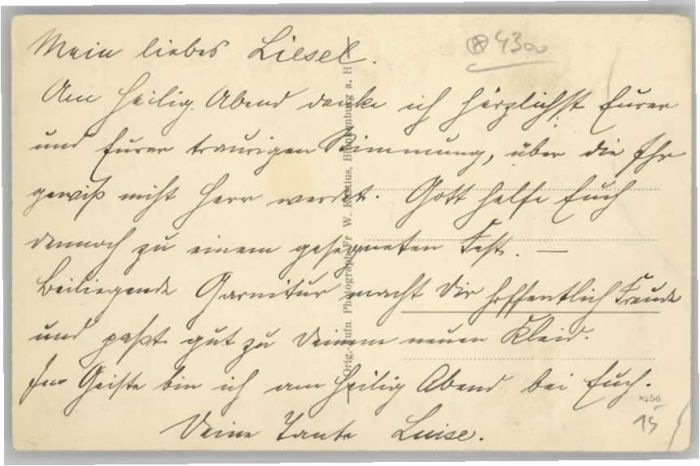 Mein liebes Liesel.
4300
Am heilig. Abend denke ich herzlichst Eurer
und Eurer traurigen Stimmung, über die Ihr
gewiß nicht Herr werdet. Gott helfe Euch
dennoch zu einem gesegneten Fest. —
Beiliegende Garnitur macht Dir hoffentlich Freude
und paßt gut zu Deinem neuen Kleid.
Im Geiste bin ich am heilig Abend bei Euch.
Deine Tante Luise.
15
Orig.-Aufn. Photograph Fr. W. Brandenburg a. H.